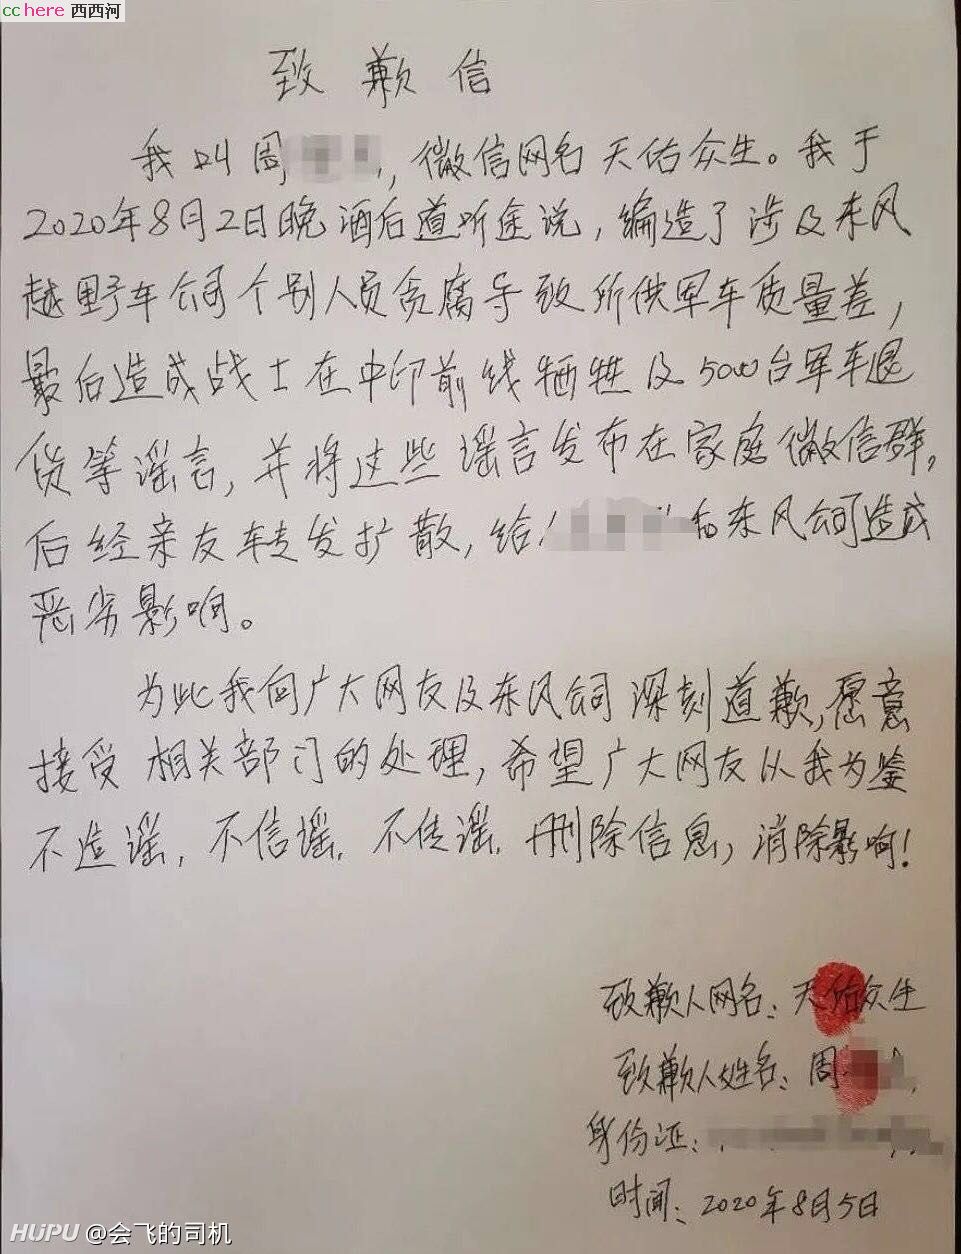 cchere 西西河
致歉信
我叫周，微信网名天佑众生。我于
2020年8月2日晚酒后道听途说，编造了涉及东风
越野车公司个别人员贪腐导致所供军车质量差，
最后造成战士在中印前线牺牲及5000台军车退
货等谣言，并将这些谣言发布在家庭微信群，
后经亲友转发扩散，给和东风公司造成
恶劣影响。
为此我向广大网友及东风公司深刻道歉，愿意
接受相关部门的处理，希望广大网友从我为鉴
不造谣，不信谣，不传谣，删除信息，消除影响！
致歉人网名：天佑众生
致歉人姓名：周
身份证：
时间：2020年8月5日
HUPU @会飞的司机